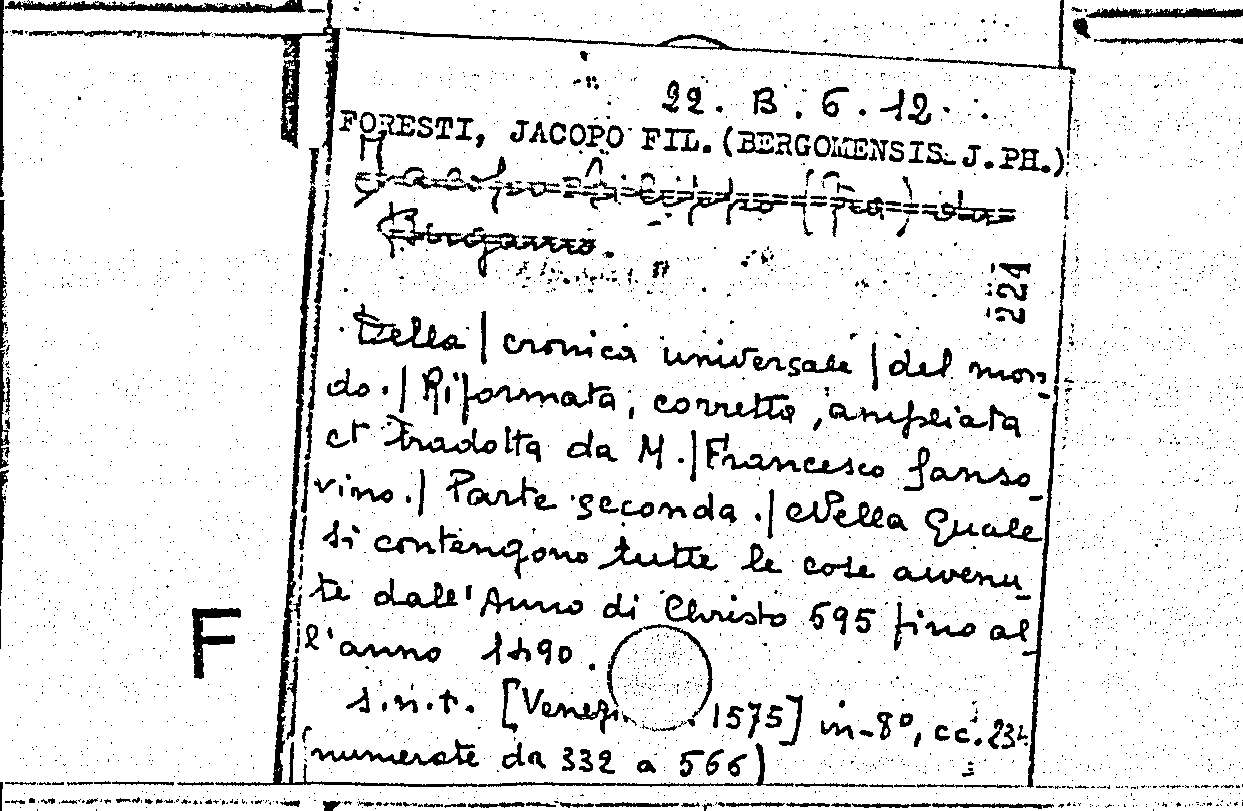 22. B. 6. 12.
FORESTI, JACOPO FIL. (BERGOMENSIS J.PH.)
Jacopo Filippo (Fra) da
Bergamo.
224
Della | cronica universale | del mon-
do. | Riformata, corretta, ampliata
et tradotta da M. | Francesco Sanso-
vino. | Parte seconda. | Nella Quale
si contengono tutte le cose avvenu-
te dall'Anno di Christo 595 fino al-
l'anno 1490.
F
s.n.t. [ 1575] in-8°, cc.
(numerate da 332 a 566)